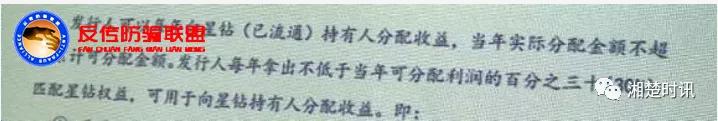 反传防骗联盟
发行人可以每年向星钻（已流通）持有人分配收益，当年实际分配金额不超
计可分配金额。发行人每年拿出不低于当年可分配利润的百分之三十
匹配星钻权益，可用于向星钻持有人分配收益。即：
湘楚时讯